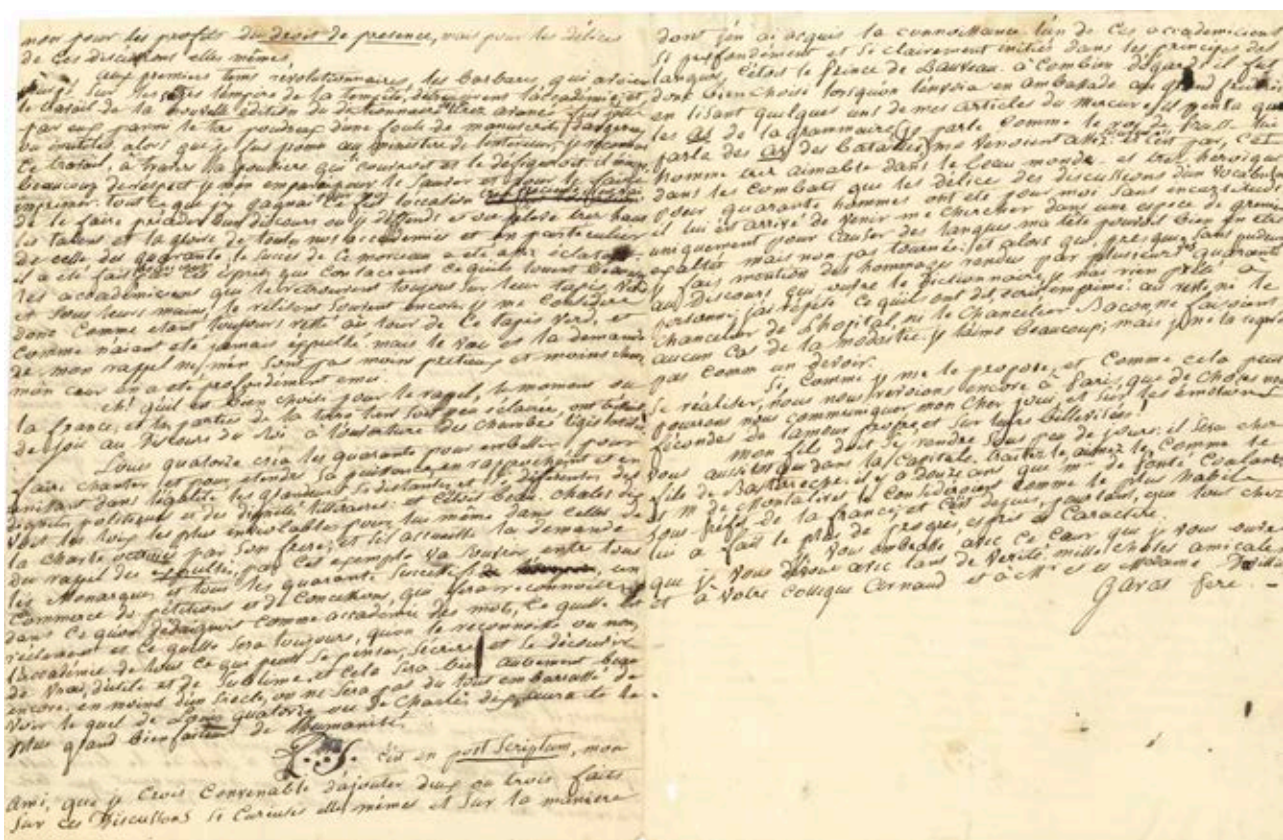 non pour les profits du droit de presence, mais pour les délices
de ces discussions elles mêmes.
aux premiers tems revolutionnaires, les barbares, qui avoient
sur les tempore de la tempête, detruisirent l'académie; et
le travail de la nouvelle édition du dictionnaire trez avancé fus jetté
par eux parmi le tas poudreux d'une foule de manuscrits dangereux
ou inutiles. alors que je fus promu au ministere de l'interieur, je reconnus
ce travail, à travers la poussiere qui couvroit et le defiguroit il
beaucoup de respect je m'en emparai pour le sauver et pour le faire
imprimer. tout ce que j'y gagnai l'occasion
de le faire préceder d'un discours ou je deffends et ou j'eleve trez haut
les talens et la gloire de toutes nos académies et en particulier
de celle des quarante. le succez de ce morceau a eté assez éclatant
il a eté fait par ces esprits qui consacrent ce qu'ils louent
les académiciens qui le retrouvent toujours sur leur tapis verd
et sous leurs mains, le relisent souvent encore. je me considere
donc comme etant toujours resté au tour de ce tapis verd, et
comme n'aiant eté jamais expulsé. mais le vœu et la demande
de mon rappel ne m'en sont pas moins pretieux et moins chers
mon cœur en a eté profondement emu.
oh! qu'il est bien choisi pour le rapel, le moment ou
la france, et les parties de la terre tant soit peu éclairées, ont
de joie au discours du Roi à l'ouverture des chambres legislatives
Louis quatorze créa les quarante pour embellir pour
faire chanter et pour etendre sa puissance en rapprochant et en
mettant dans l'egalité les grandeurs si distantes et si differentes des
dignités politiques et des dignités litteraires: et c'étoit beau. charles dix
voit les loix les plus inviolables pour lui même dans celles de
la charte octroiée par son frere; et s'il accueille la demande
du rapel des expulsés, par cet exemple va s'ouvrir entre tous
les Monarques et tous les quarante successifs un
commerce de pétitions et de concessions, qui fera reconnoitre
dans ce qu'on dedaignoit comme académie des mots, ce qu'elle est
réelement et ce qu'elle sera toujours, qu'on le reconnoisse ou non,
l'académie de tous ce qui peut se penser, s'ecrire et se découvrir
de vrai, d'utile et de sublime. et cela sera bien autrement beau
encore. en moins d'un siecle, on ne sera pas du tout embarrassé de
voir le quel de Louis quatorze ou de Charles dix, aura été le
plus grand bienfaiteur de l'humanité.
P.S. C'est en post Scriptum, mon
ami, que je crois convenable d'ajouter deux ou trois faits
sur ces discussions si curieuses elles mêmes et sur la maniere
dont j'en ai acquis la connoissance. l'un de ces académiciens
si profondement et si clairement initiés dans les principes des
langues, c'étoit le Prince de Bauveau. à combien d'egards il fut
donc bien choisi lorsqu'on l'envoia en ambassade au grand
en lisant quelques uns de mes articles du Mercure, il pensa que
les as de la grammaire (je parle comme le roi de Pruss. qui
parle des as des batailles) me venoient assez: et c'est par cet
homme trez aimable dans le beau monde et trez heroique
dans les combats que les délices des discussions d'un vocabulaire
pour quarante hommes ont eté pour moi sans incertitude
il lui est arrivé de venir me chercher dans une espece de grenier
uniquement pour causer des langues. ma tête pouvoit bien en etre
exaltée mais non pas tournée: et alors que, presque sans pudeur
je fais mention des hommages rendus par plusieurs des quarante
au Discours qui ouvre le dictionnaire, je n'ai rien preté à
personne; j'ai répété ce qu'ils ont dit, ecrit, imprimé. au reste, ni le
Chancelier de L'hopital, ni le Chancelier Bacon, ne faisoient
aucun cas de la modestie. je l'aime beaucoup; mais je ne la regarde
pas comm un devoir.
Si, comme je me le propose, et comme cela peut
se réaliser, nous nous reversions encore à Paris, que de choses nous
pourrons nous communiquer, mon cher Joui, et sur les émotions
fécondes de l'amour propre, et sur leurs billevisées!
mon fils doit se rendre sous peu de jours: il sera chez
vous aussitot que dans la Capitale. traitez le, aimez le comme le
fils de Bastarreche. il y a douze ans que Mr. de
et M. de Montalivet le consideroient comme le plus habile
sous prefet de la france; et c'est depuis, pourtant, que tous chez
lui a fait le plus de progrez, esprit et caractere.
Je vous embrasse avec ce cœur que je vous ouvre
que je vous dévoue avec tant de verité. mille choses amicales
et à votre collegue Arnaud et à Mr. et à Madame
Garat fere.